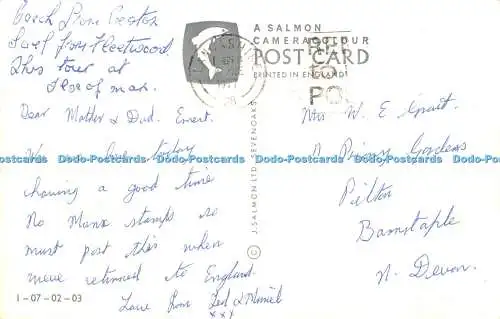 Coach from Preston
Sail from Fleetwood
This tour at
Isle of man.
Dear Mother & Dad. Ernest.
We here today
having a good time
No Manx stamps so
must post this when
weve returned to England.
Love from Ted & Muriel
xxx
1-07-02-03
A SALMON
CAMERACOLOUR
POST CARD
PRINTED IN ENGLAND
PO
© J. SALMON LTD. SEVENOAKS
Mrs W. E
Priory Gardens
Pilton
Barnstaple
N. Devon.
Dodo-Postcards Dodo-Postcards Dodo-Postcards Dodo-Postcards Dodo-Postcards Dodo-Postcards